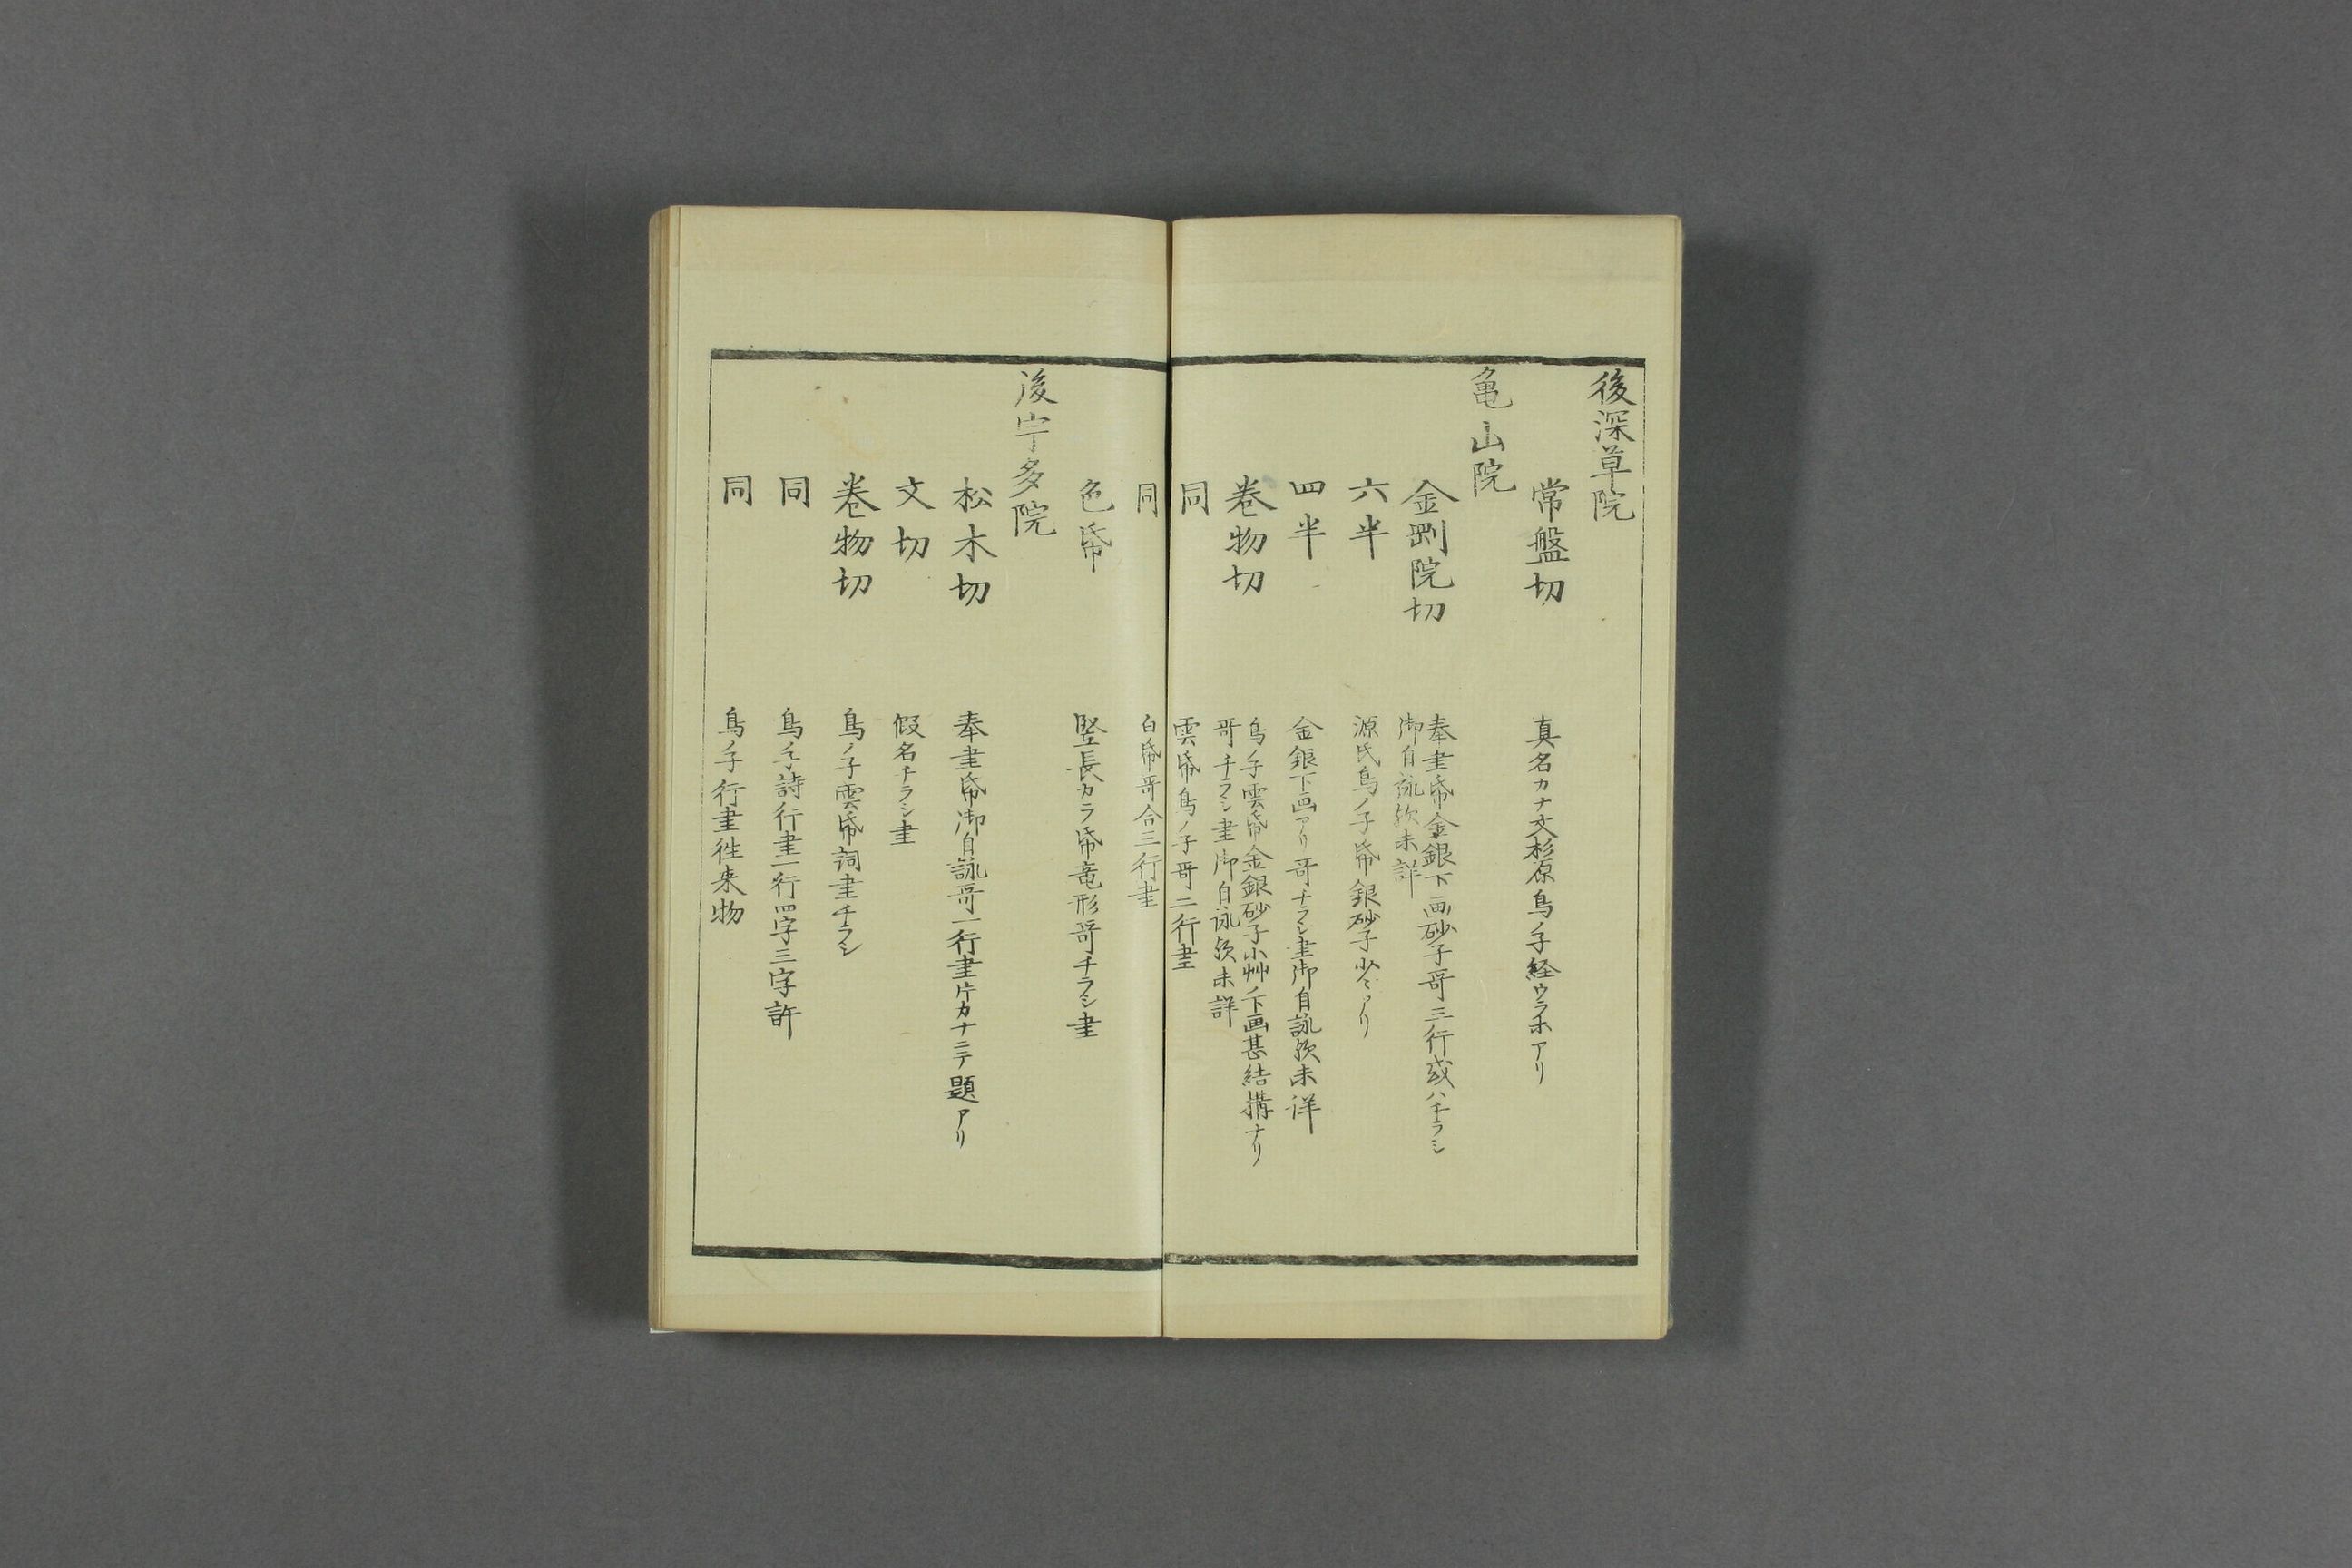 後深草院
常盤切　真名カナ文杉原鳥ノ子経ウラホアリ
亀山院
金剛院切　奉書帋金銀下画砂子哥三行或ハチラシ
御自詠歟未詳
六半　源氏鳥ノ子帋銀砂子少々アリ
四半　金銀下画アリ哥チラシ書御自詠歟未詳
巻物切　鳥ノ子雲帋金銀砂子小艸ノ下画甚結構ナリ
哥チラシ書御自詠歟未詳
同　雲帋鳥ノ子哥二行書
同　白帋哥合三行書
色帋　竪長カラ帋竜形哥チラシ書
後宇多院
松木切　奉書帋御自詠哥一行書片カナニテ題アリ
文切　假名チラシ書
巻物切　鳥ノ子雲帋詞書チラシ
同　鳥ノ子詩行書一行四字三字許
同　鳥ノ子行書往来物